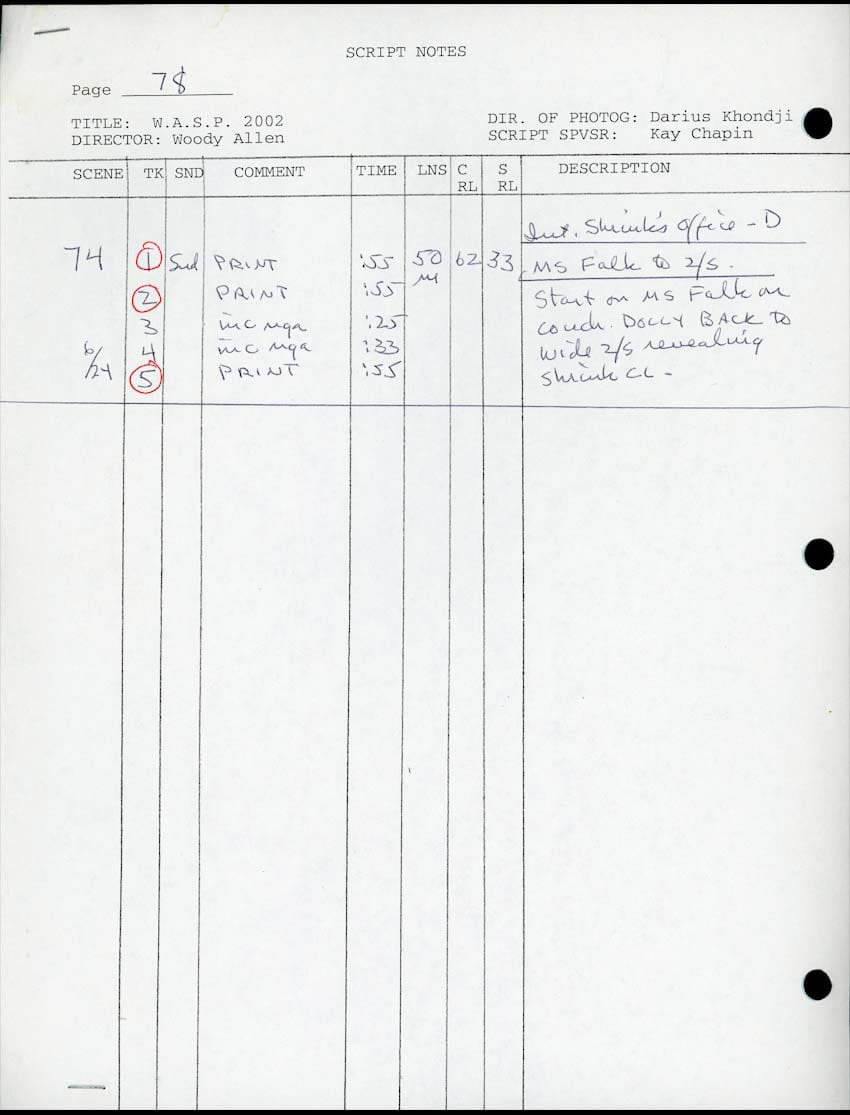 SCRIPT NOTES
Page 78
TITLE: W.A.S.P. 2002
DIR. OF PHOTOG: Darius Khondji
DIRECTOR: Woody Allen
SCRIPT SPVSR: Kay Chapin
SCENE TK SND COMMENT TIME LNS C RL S RL DESCRIPTION
Int. Shrink's Office - D
74 1 Snd PRINT :55 50 62 33 MS Falk to 2/s.
M
2 PRINT :55 Start on MS Falk on
3 inc nga :25 couch. DOLLY BACK TO
6/24 4 inc nga :33 wide 2/s revealing
5 PRINT :55 shrink CL -